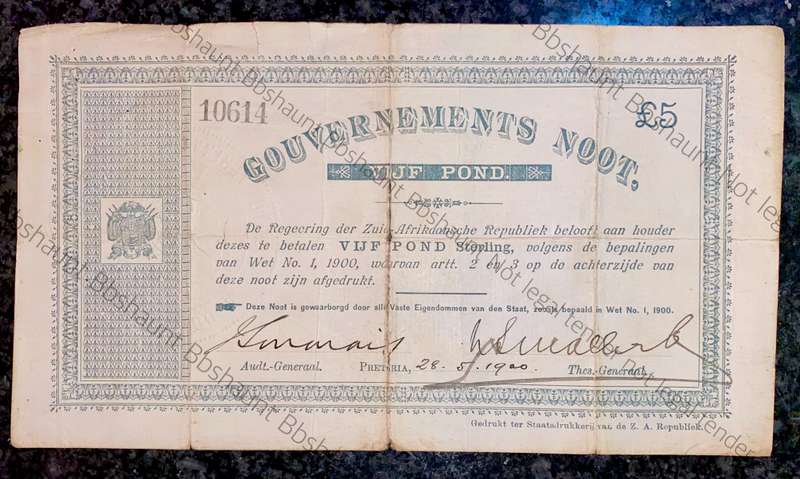 10614
£5
GOUVERNEMENTS NOOT.
VIJF POND.
De Regeering der Zuid-Afrikaansche Republiek belooft aan houder
dezes te betalen VIJF POND Sterling, volgens de bepalingen
van Wet No. 1, 1900, waarvan artt. 2 en 3 op de achterzijde van
deze noot zijn afgedrukt.
Deze Noot is gewaarborgd door alle Vaste Eigendommen van den Staat, zooals bepaald in Wet No. 1, 1900.
Audt.-Generaal. PRETORIA, 28.5.1900. Thes.-Generaal.
Gedrukt ter Staatsdrukkerij van de Z. A. Republiek.
Bbshaunt Bbshaunt Bbshaunt Bbshaunt Not legal tender Not legal tender
Bbshaunt Bbshaunt Bbshaunt Not legal tender Not legal tender
Bbshaunt Bbshaunt Bbshaunt